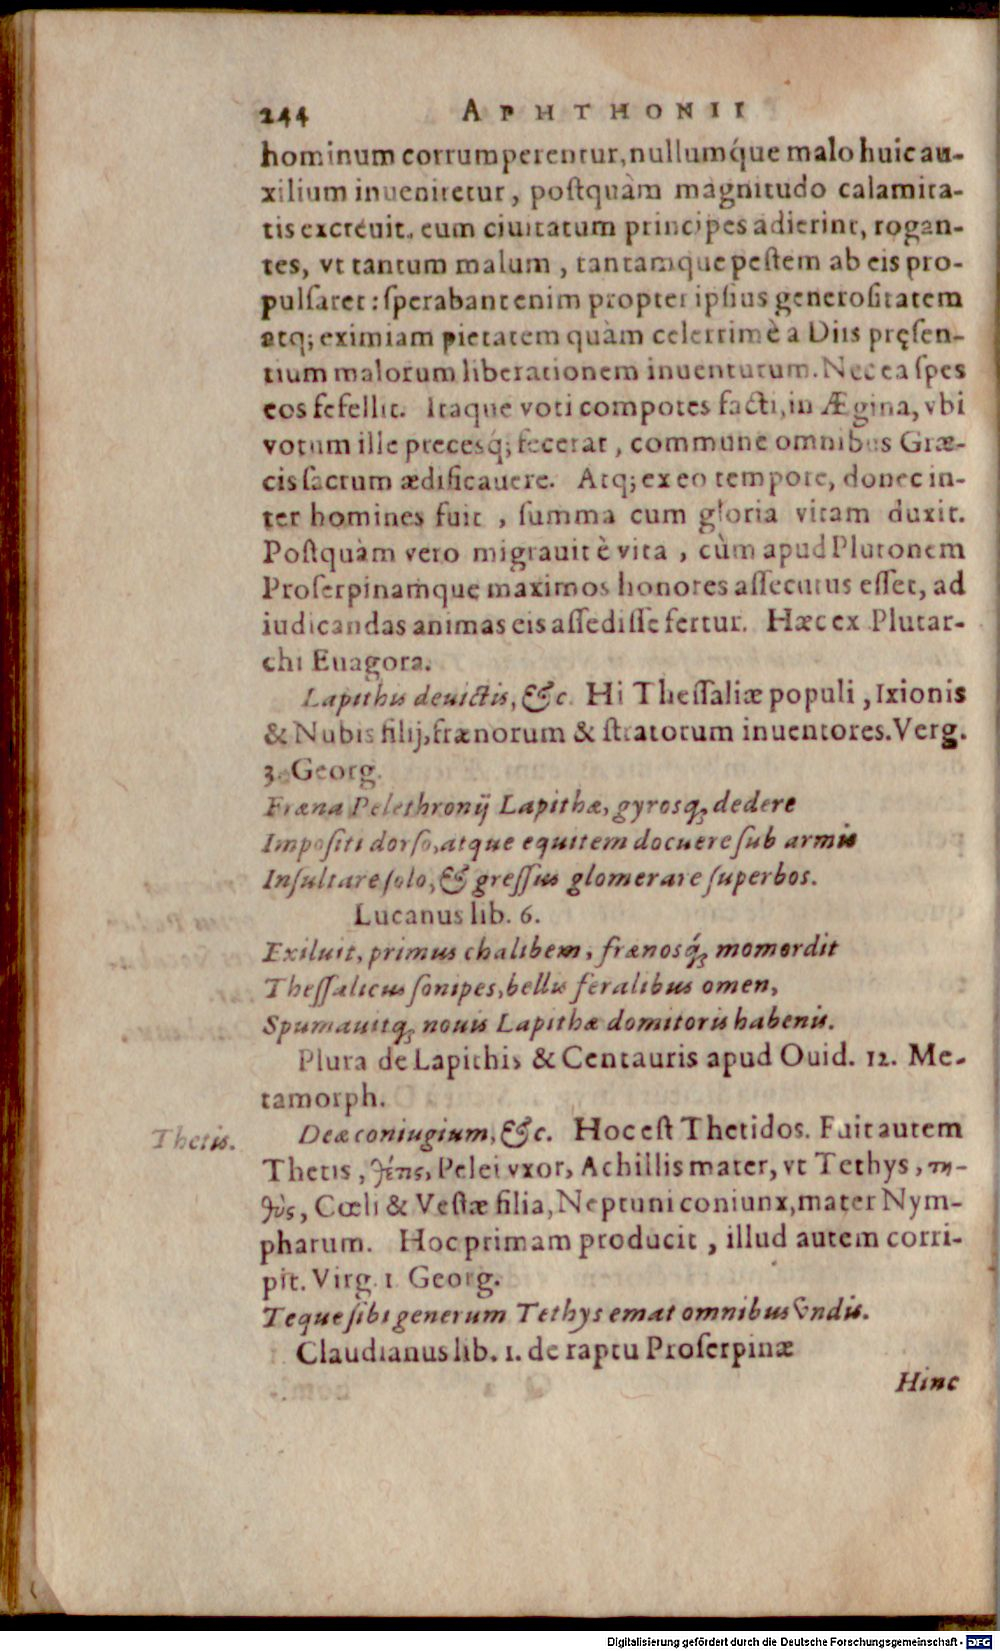 244 APHTHONII
hominum corrumperentur, nullumq́ue malo huic au-
xilium inueniretur, postquàm magnitudo calamita-
tis excreuit, eum ciuitatum principes adierint, rogan-
tes, vt tantum malum, tantamque pestem ab eis pro-
pulsaret: sperabant enim propter ipsius generositatem
atq; eximiam pietatem quàm celerrimè a Diis pręsen-
tium malorum liberationem inuenturum. Nec ea spes
eos fefellit. Itaque voti compotes facti, in Ægina, vbi
votum ille precesq́; fecerat, commune omnibus Græ-
cis sacrum ædificauere. Atq; ex eo tempore, donec in-
ter homines fuit, summa cum gloria vitam duxit.
Postquàm vero migrauit è vita, cùm apud Plutonem
Proserpinamque maximos honores assecutus esset, ad
iudicandas animas eis assedisse fertur. Hæc ex Plutar-
chi Euagora.
Lapithis deuictis, &c. Hi Thessaliæ populi, Ixionis
& Nubis filij, frænorum & stratorum inuentores. Verg.
3. Georg.
Fræna Pelethronij Lapithæ, gyrosq; dedere
Impositi dorso, atque equitem docuere sub armis
Insultare solo, & gressus glomerare superbos.
Lucanus lib. 6.
Exiluit, primus chalibem, frænosq́; momordit
Thessalicus sonipes, bellis feralibus omen,
Spumauitq; nouis Lapithæ domitoris habenis.
Plura de Lapithis & Centauris apud Ouid. 12. Me-
tamorph.
Thetis.
Deæ coniugium, &c. Hoc est Thetidos. Fuit autem
Thetis, θέτις, Pelei vxor, Achillis mater, vt Tethys, τη-
θὺς, Cœli & Vestæ filia, Neptuni coniunx, mater Nym-
pharum. Hoc primam producit, illud autem corri-
pit. Virg. 1 Georg.
Teque sibi generum Tethys emat omnibus vndis.
Claudianus lib. 1. de raptu Proserpinæ
Hinc
Digitalisierung gefördert durch die Deutsche Forschungsgemeinschaft - DFG